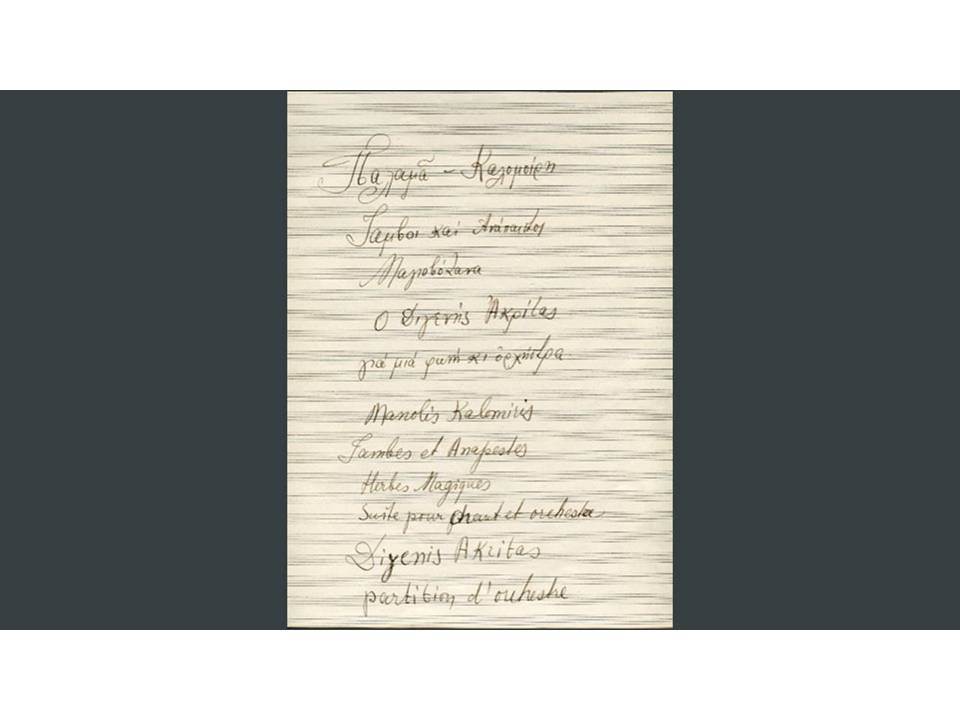 Παλαμᾶ – Καλομοίρη
Ίαμβοι και Ἀνάπαιστοι
Μαγιοβότανα
Ο Διγενής Ἀκρίτας
γιά μιά φωνή κι ὀρχήστρα
Manolis Kalomiris
Iambes et Anapestes
Herbes Magiques
Suite pour chant et orchestre
Digenis Akritas
partition d'orchestre